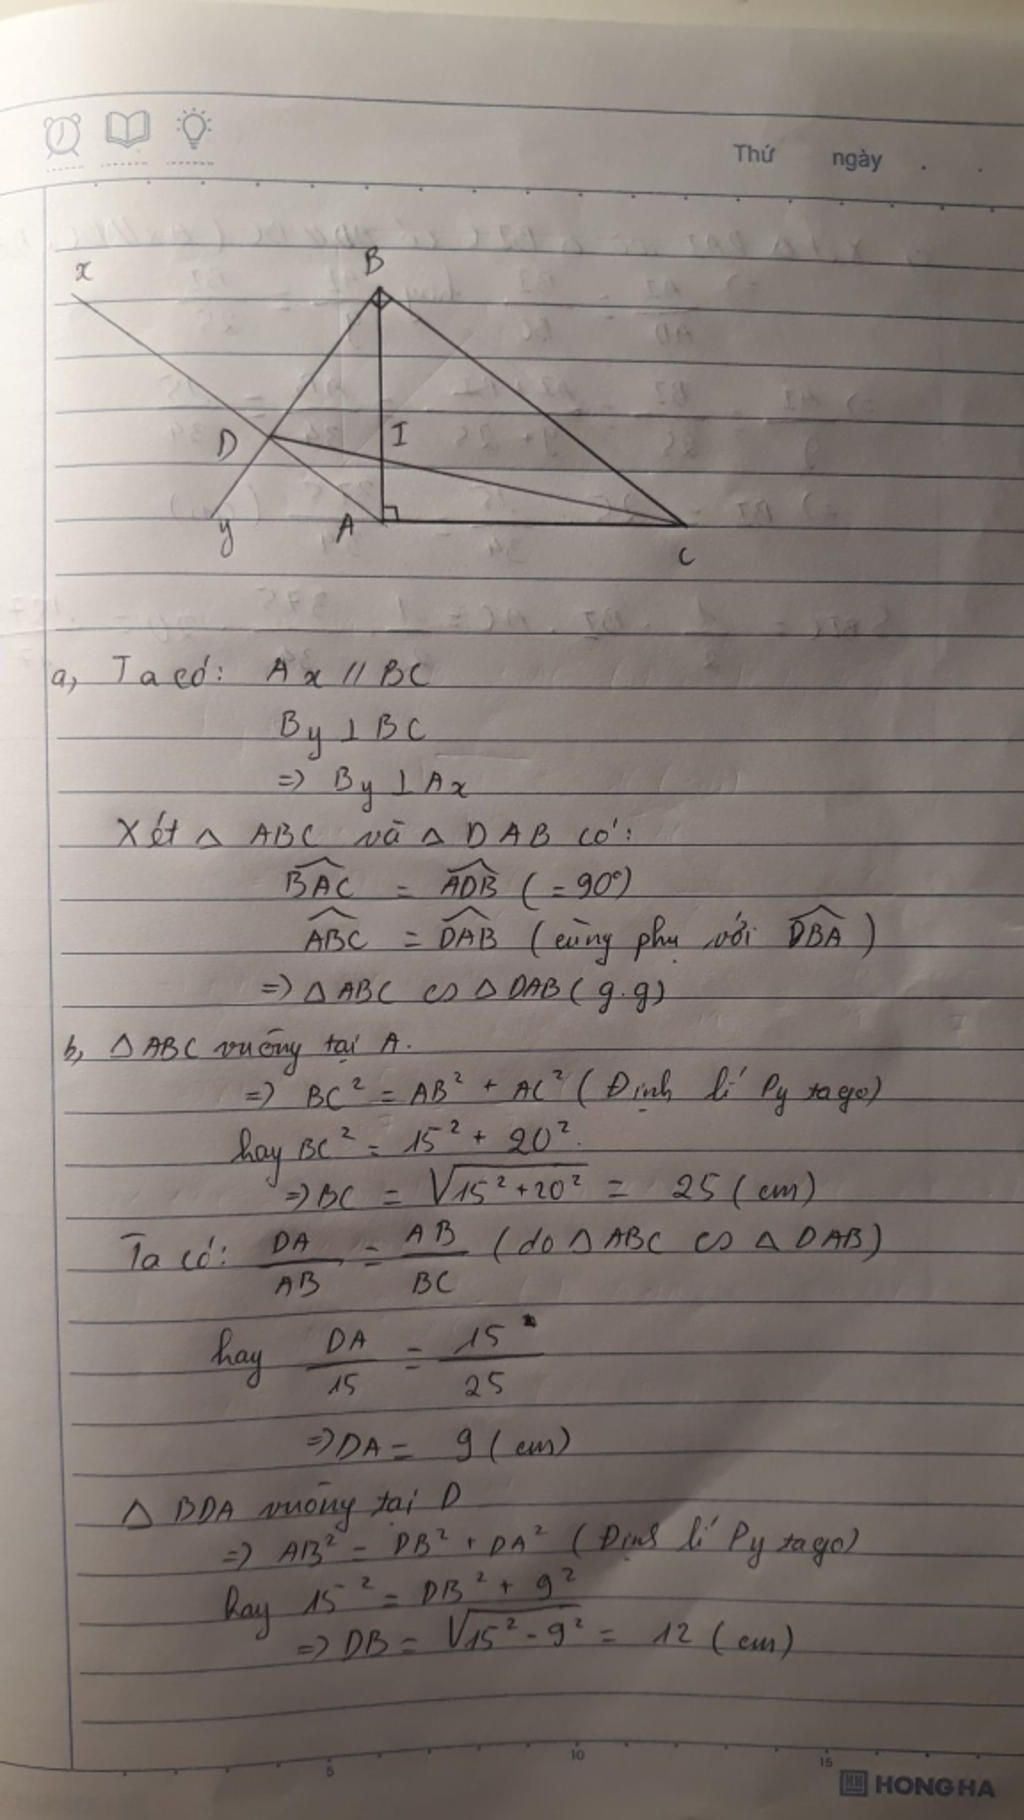 Thứ ngày
x
B
D
I
y
A
C
a, Ta có: Ax // BC
By ⊥ BC
=> By ⊥ Ax
Xét △ ABC và △ DAB có:
BAC = ADB (= 90°)
ABC = DAB (cùng phụ với DBA)
=> △ ABC ∽ △ DAB (g.g)
b, △ ABC vuông tại A.
=> BC² = AB² + AC² (Định lí Py tago)
hay BC² = 15² + 20².
=> BC = √15² + 20² = 25 (cm)
Ta có: DA/AB = AB/BC (do △ ABC ∽ △ DAB)
hay DA/15 = 15/25
=> DA = 9 (cm)
△ BDA vuông tại D
=> AB² = DB² + DA² (Định lí Py tago)
hay 15² = DB² + 9²
=> DB = √15² - 9² = 12 (cm)
5 10 15
HONG HA